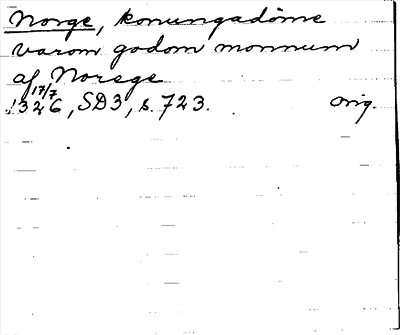 Norge, konungadöme
varom godom monnum
af Norege
17/7
1326, SD3, s. 723. orig.